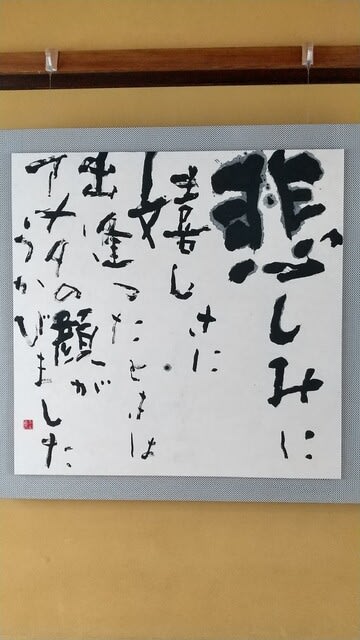 悲しみに
嬉しさに
出逢ったときは
アナタの顔が
うかびました